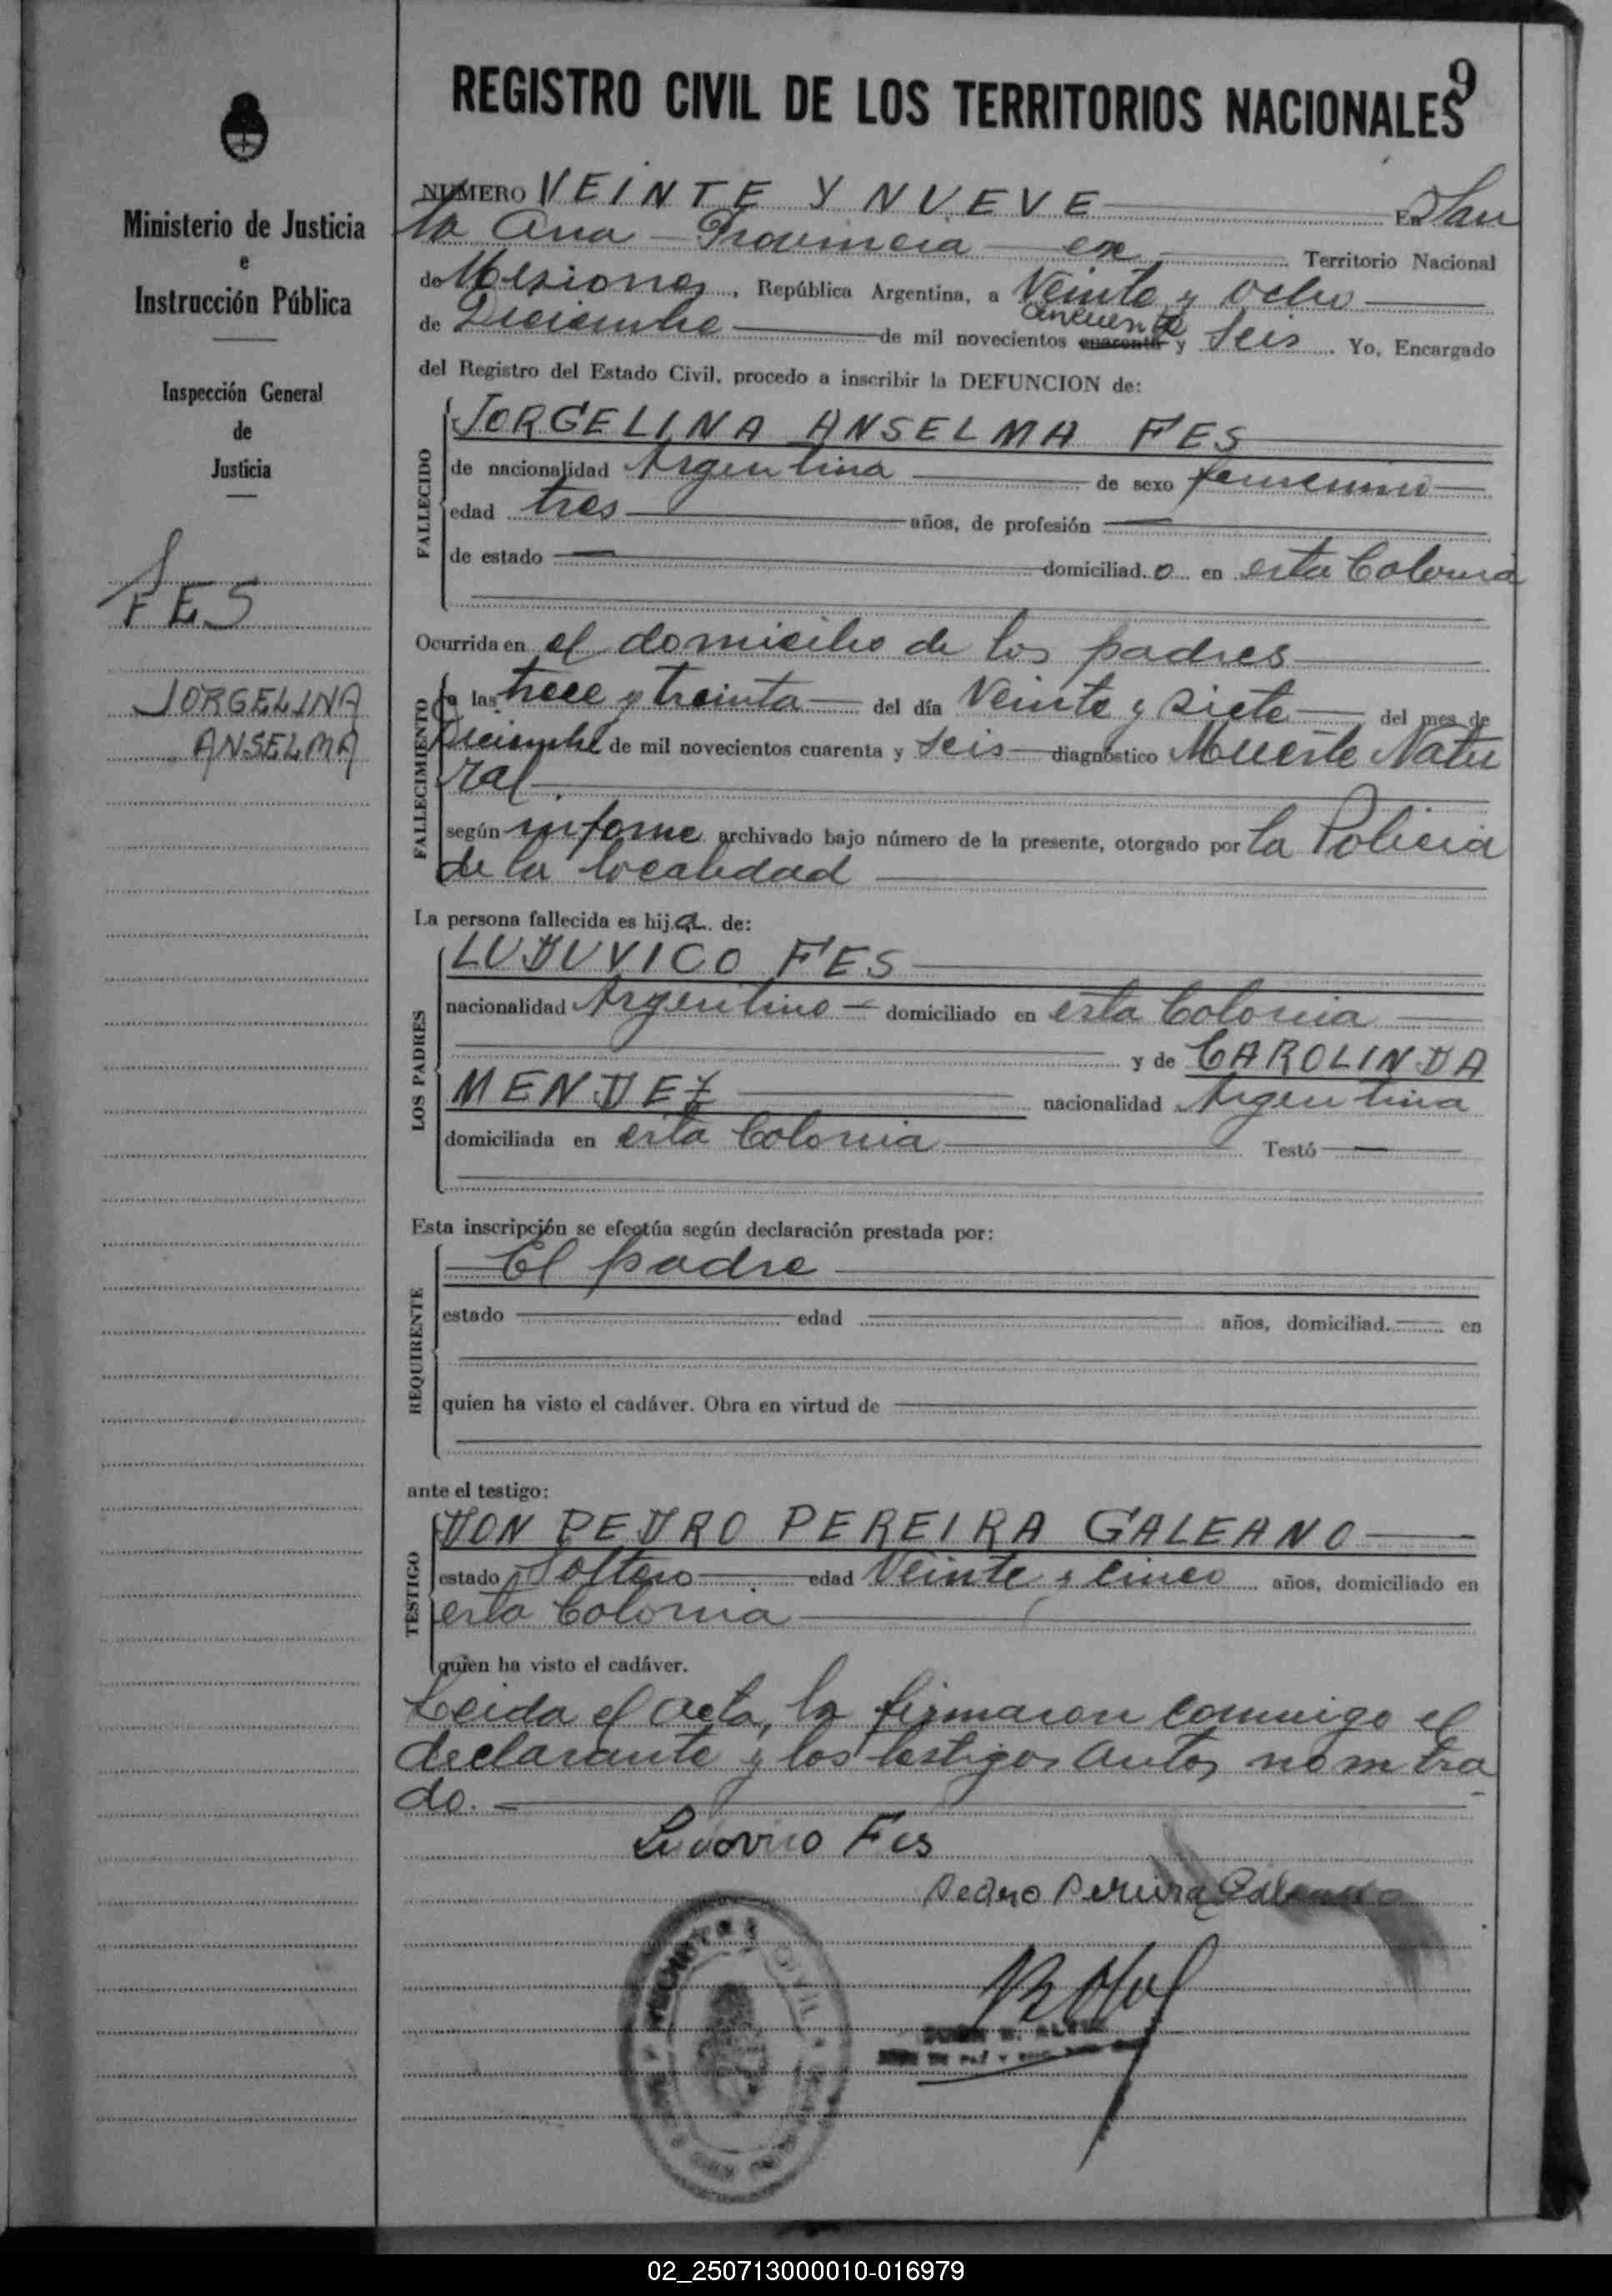 9
REGISTRO CIVIL DE LOS TERRITORIOS NACIONALES
Ministerio de Justicia
e
Instrucción Pública
Inspección General
de
Justicia
FES
JORGELINA
ANSELMA
NUMERO VEINTE Y NUEVE En San
ta Ana - Provincia - ex Territorio Nacional
de Misiones, República Argentina, a Veinte y ocho
de Diciembre de mil novecientos cuarenta cincuenta y Seis. Yo, Encargado
del Registro del Estado Civil, procedo a inscribir la DEFUNCION de:
FALLECIDO
JORGELINA ANSELMA FES
de nacionalidad Argentina de sexo femenino
edad tres años, de profesión
de estado domiciliad.o en esta Colonia
Ocurrida en el domicilio de los padres
FALLECIMIENTO
a las trece y treinta del día Veinte y siete del mes de
Diciembre de mil novecientos cuarenta y seis diagnóstico Muerte Natu
ral
según informe archivado bajo número de la presente, otorgado por la Policia
de la localidad
La persona fallecida es hij.a. de:
LOS PADRES
LUDUVICO FES
nacionalidad Argentino domiciliado en esta Colonia
y de CAROLINDA
MENDEZ nacionalidad Argentina
domiciliada en esta Colonia Testó
Esta inscripción se efectúa según declaración prestada por:
REQUIRENTE
El padre
estado edad años, domiciliad. en
quien ha visto el cadáver. Obra en virtud de
ante el testigo:
TESTIGO
DON PEDRO PEREIRA GALEANO
estado Soltero edad Veinte y cinco años, domiciliado en
esta Colonia
quien ha visto el cadáver.
Leida el acta, la firmaron conmigo el
declarante y los testigos antes nombra
do.
Ludovico Fes
Pedro Pereira Galeano
02_250713000010-016979